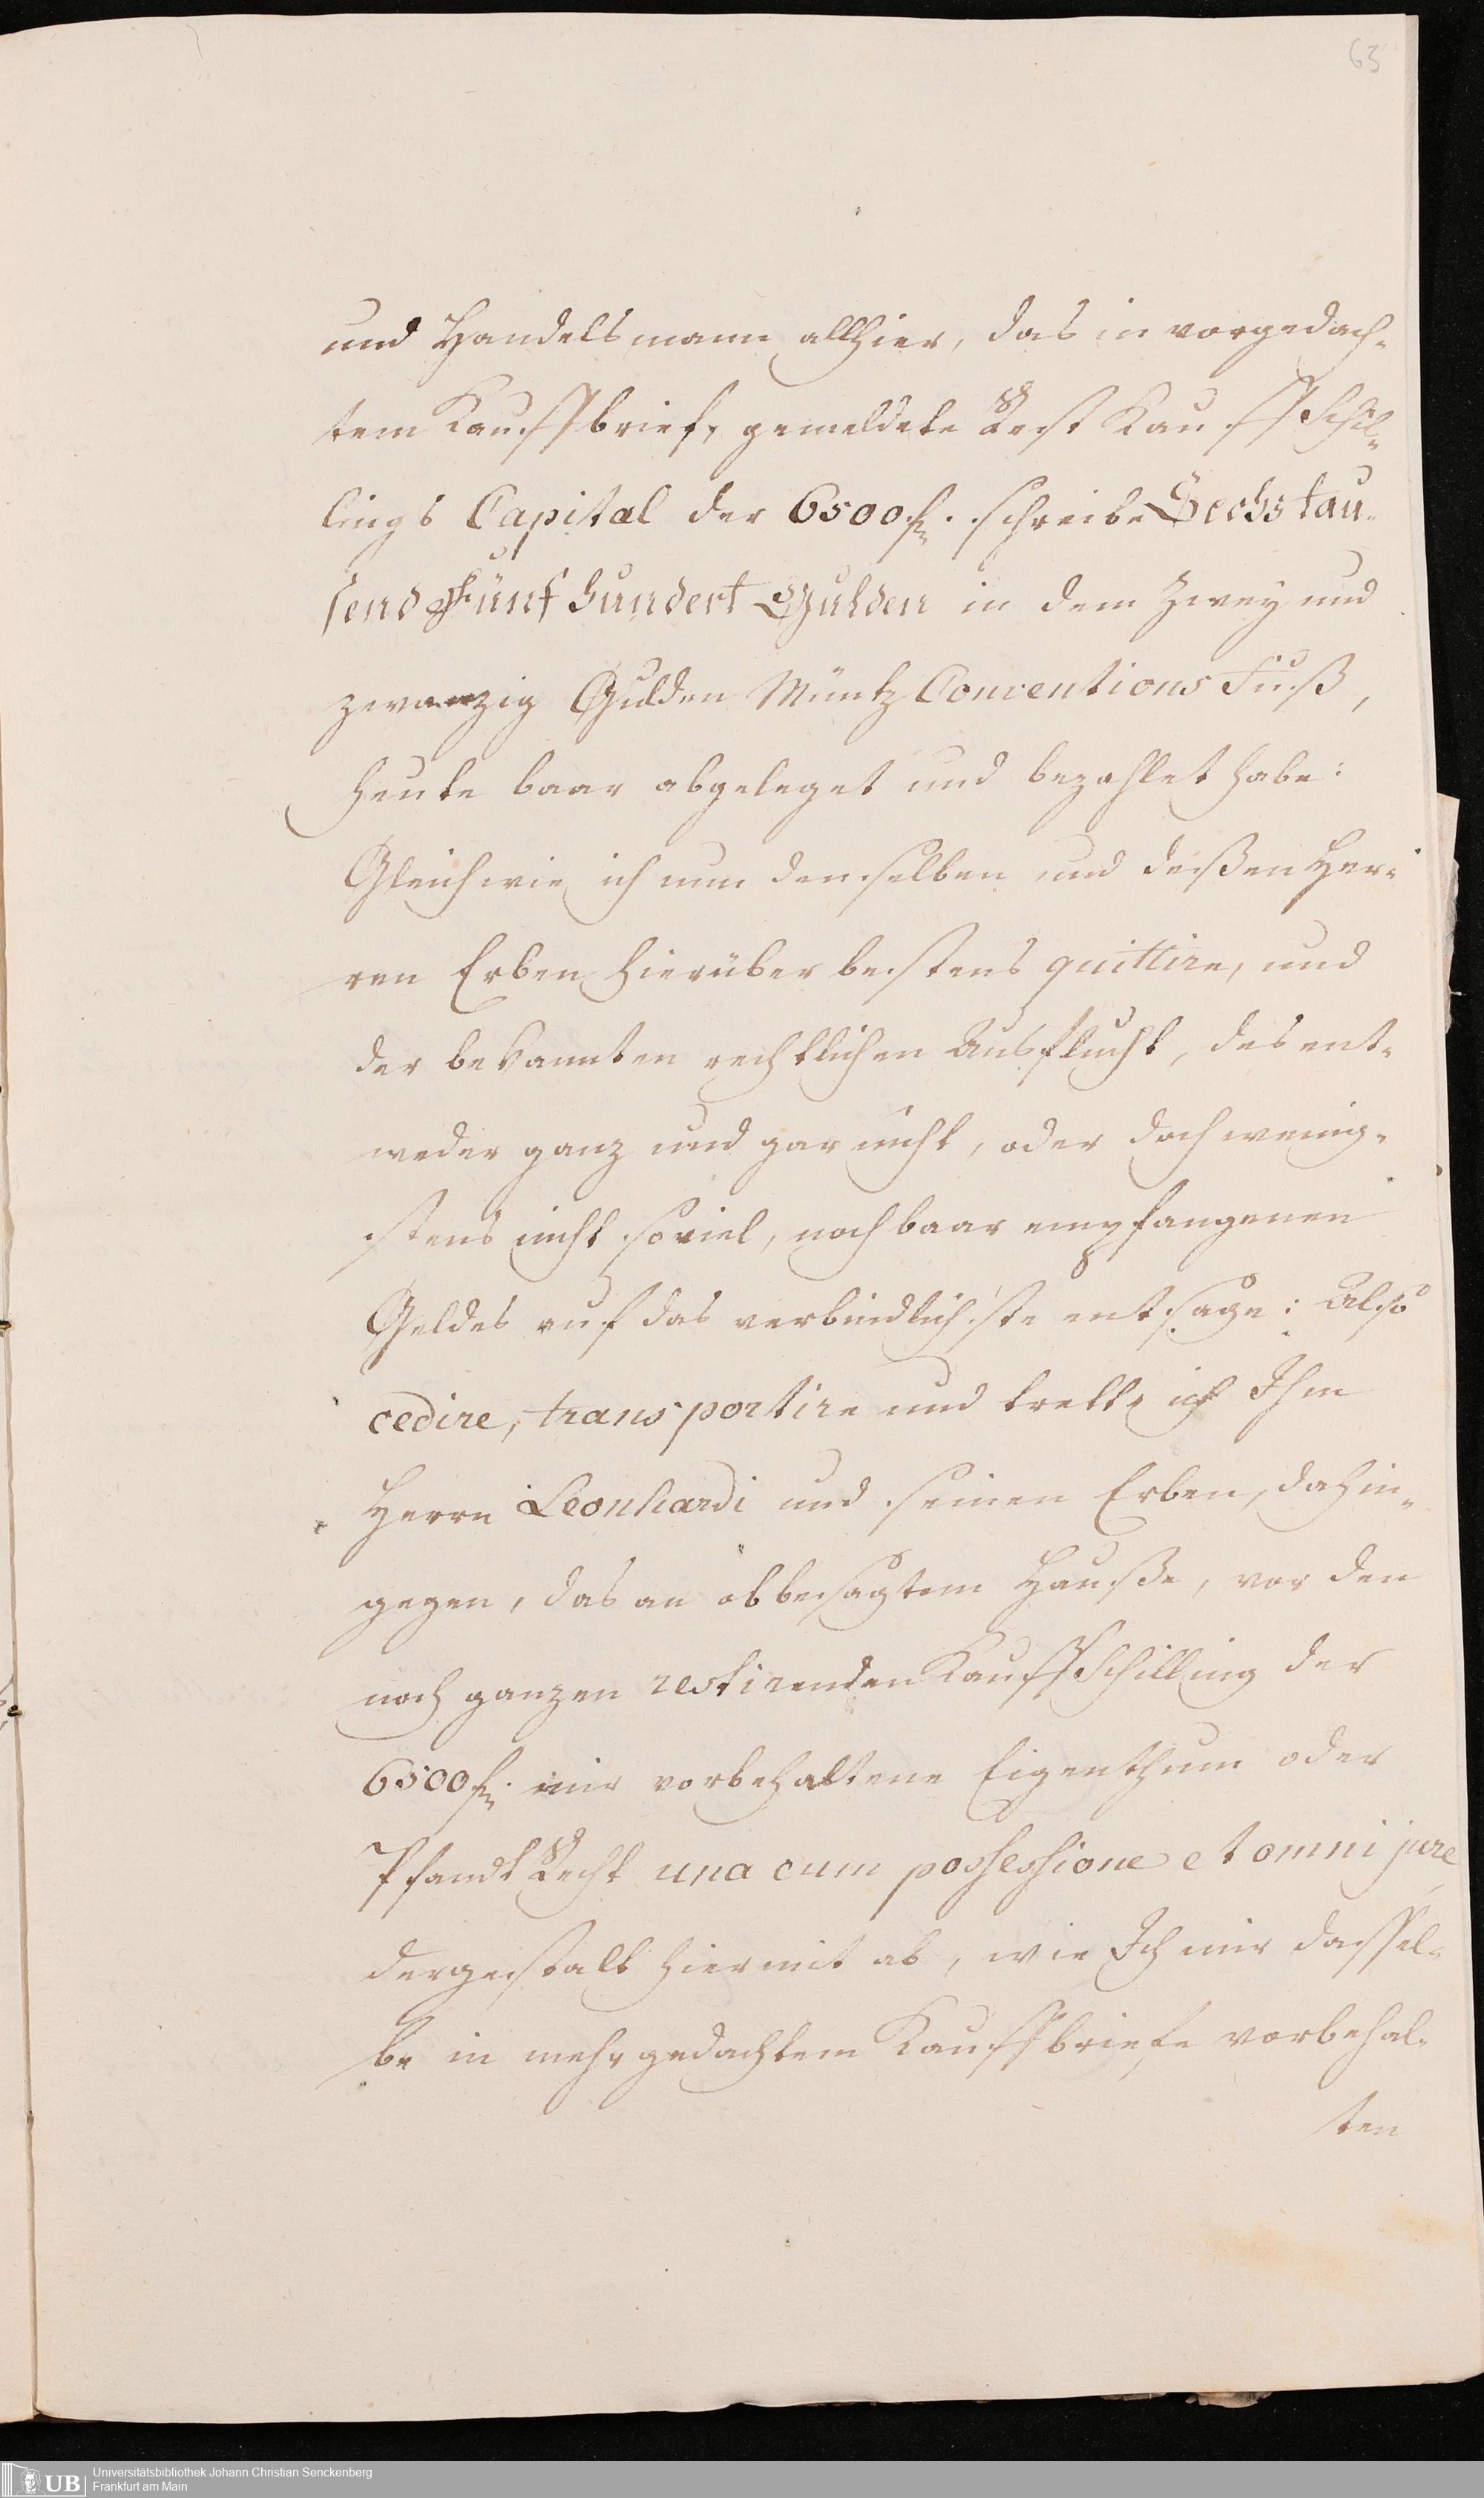 63
und Handelsmann allhier, das in vorgedach-
tem Kauffbrief, gemeldete Rest Kauffschil-
lings Capital der 6500 f. schreibe Sechstau-
send Fünfhundert Gulden in dem Zwey und
zwanzig Gulden Müntz Conventions Fuß,
heute baar abgeleget und bezahlet habe:
Gleichwie ich nun denselben und deßen Her-
ren Erben hierüber bestens quittire, und
der bekannten rechtlichen Ausflucht, des ent-
weder ganz und gar nicht, oder doch wenig-
stens nicht soviel, noch baar empfangenen
Geldes auf das verbindlichste entsage: Also
cedire, transportire und trette ich Ihm
Herrn Leonhardi und seinen Erben, dahin-
gegen, das an obbesagtem Hauße, vor den
noch ganzen restirenden Kauffschilling der
6500 f. mir vorbehaltene Eigenthum oder
Pfandt Recht una cum possessione et omni jure
dergestalt hiermit ab, wie Ich mir dassel-
be in mehrgedachtem Kauffbriefe vorbehal-
ten
UB
Universitätsbibliothek Johann Christian Senckenberg
Frankfurt am Main